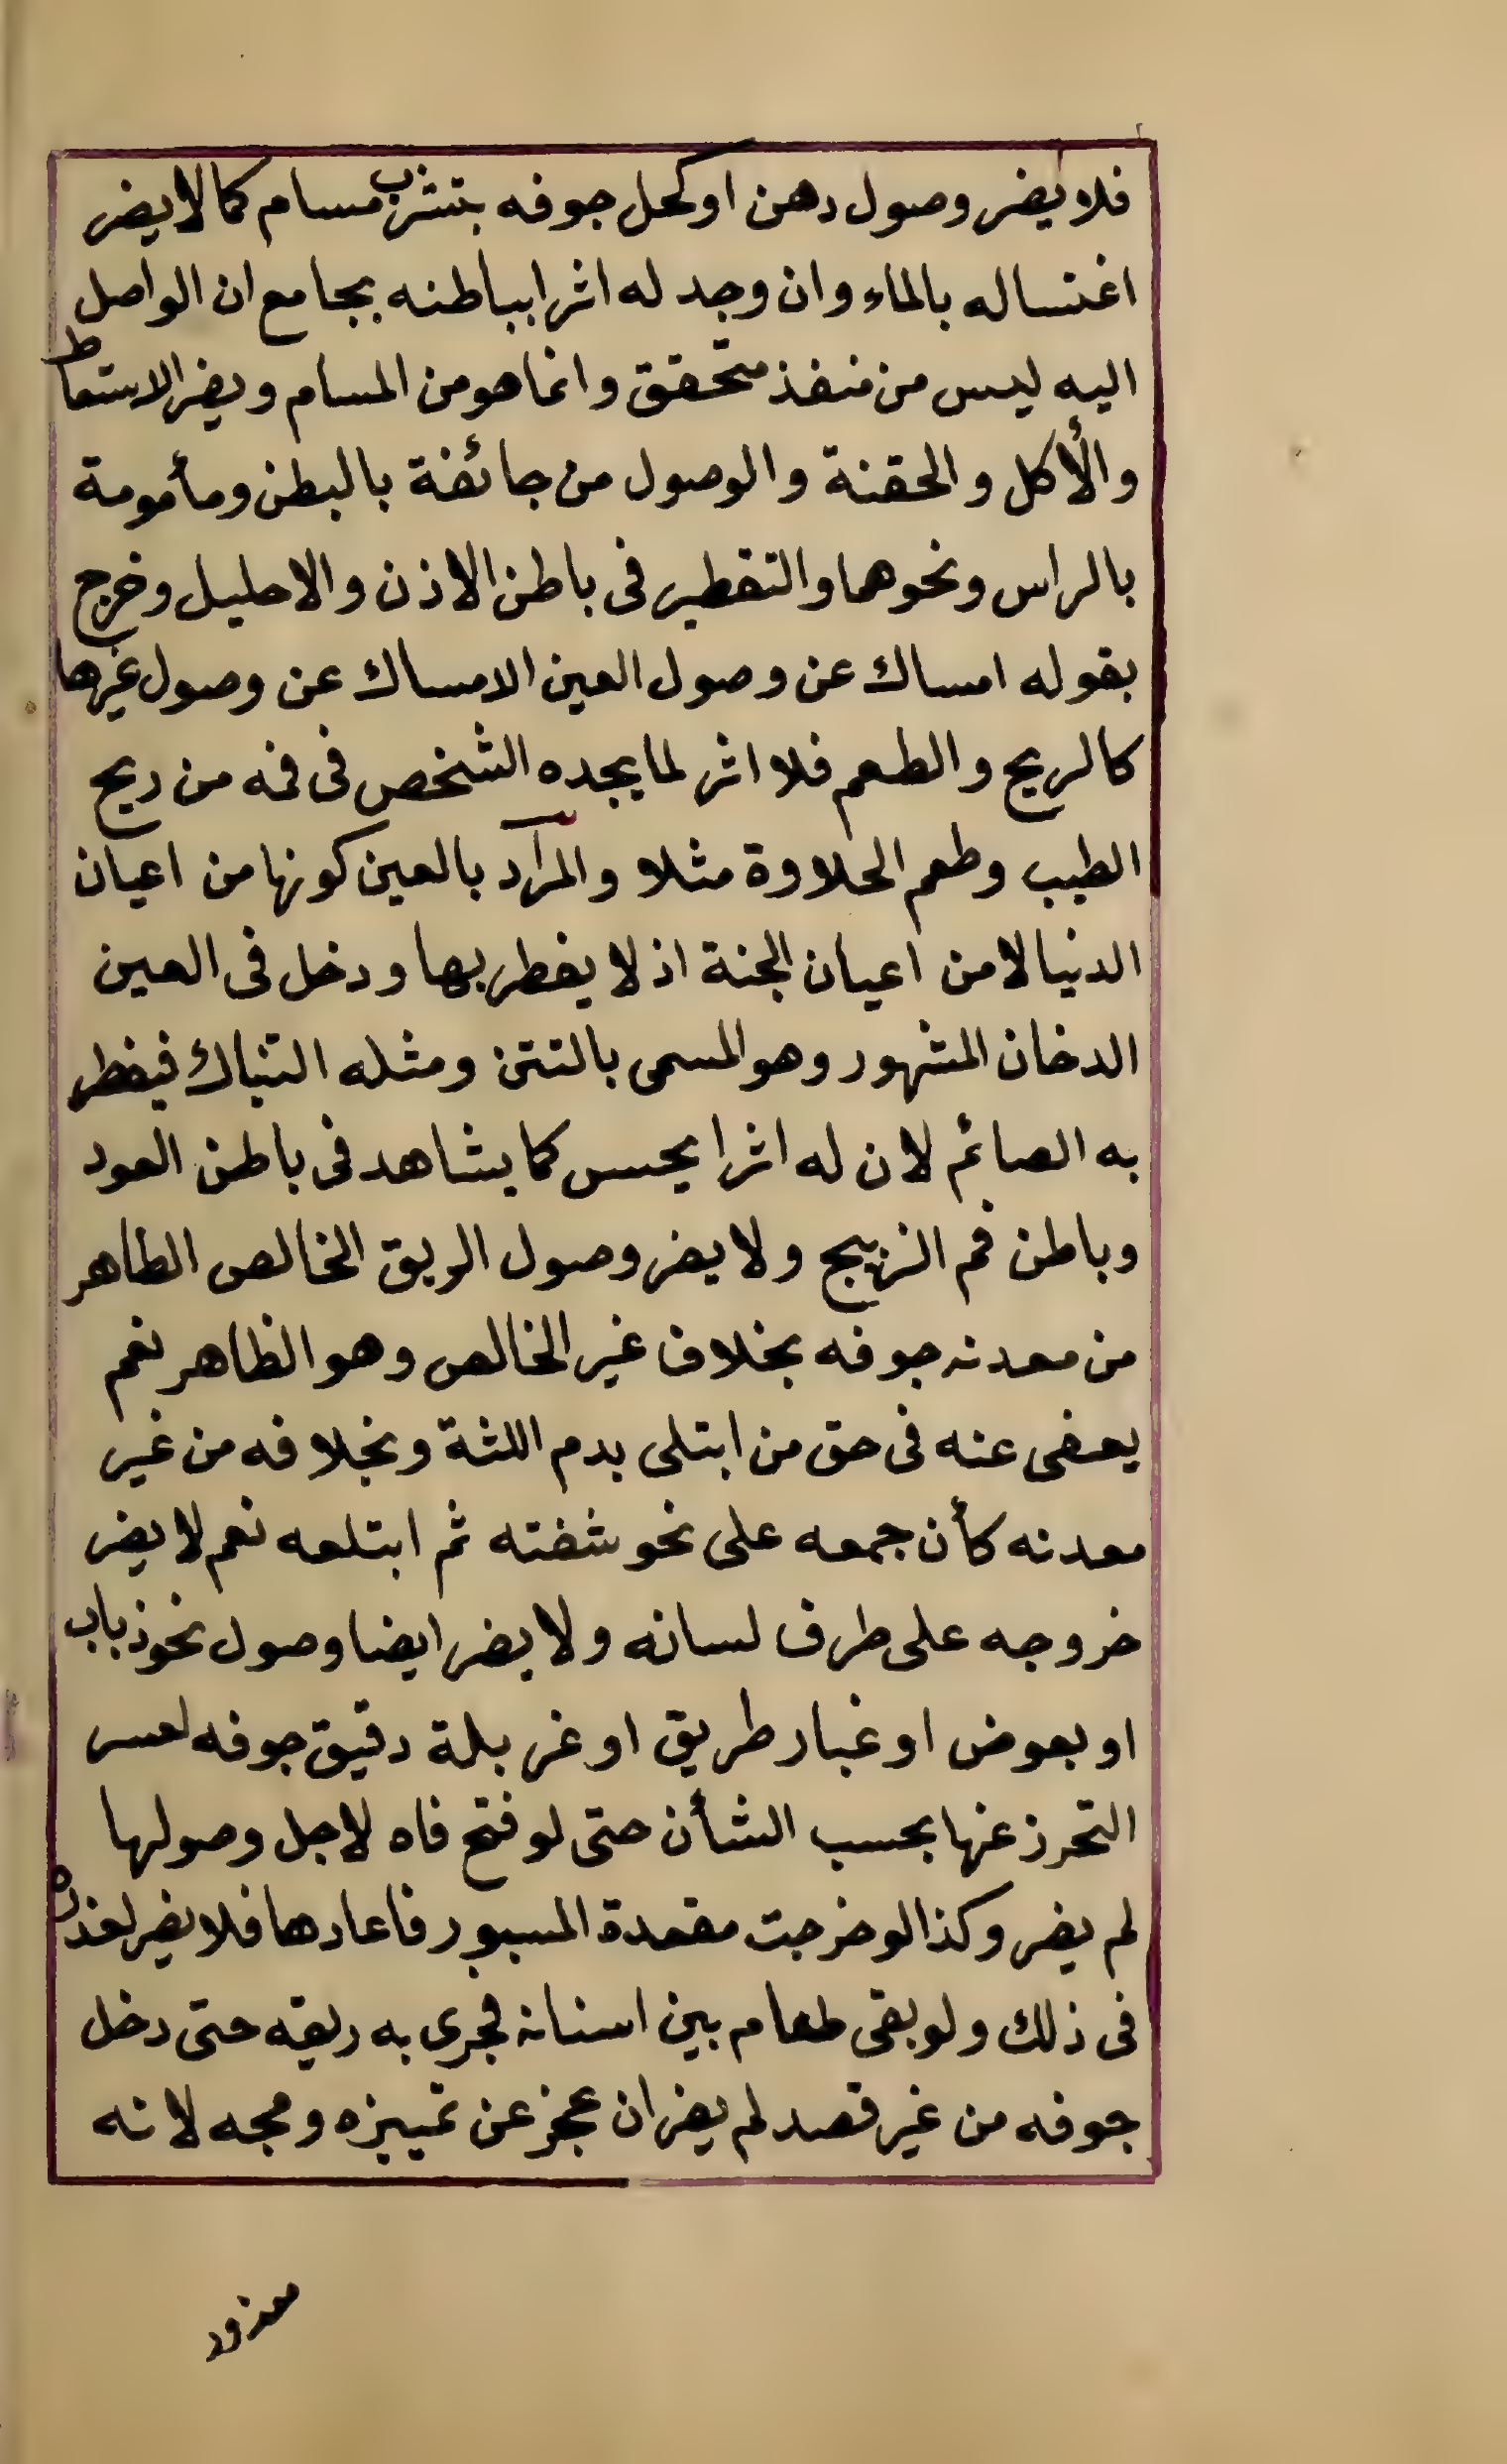 فلا يضر وصول دهن او كحل جوفه بتشرب مسام كما لا يضر
اغتساله بالماء وان وجد له اثرا بباطنه بجامع ان الواصل
اليه ليس من منفذ متحقق وانما هو من المسام ويضر الاستعاط
والأكل والحقنة والوصول من جائفة بالبطن ومأمومة
بالراس ونحوهما والتقطير فى باطن الاذن والاحليل وخرج
بقوله امساك عن وصول العين الامساك عن وصول غيرها
كالريح والطعم فلا اثر لما يجده الشخص فى فمه من ريح
الطيب وطعم الحلاوة مثلا والمراد بالعين كونها من اعيان
الدنيا لا من اعيان الجنة اذ لا يفطر بها ودخل فى العين
الدخان المشهور وهو المسمى بالتتن ومثله التنباك فيفطر
به الصائم لان له اثرا يحس كما يشاهد فى باطن العود
وباطن فم النزبيج ولا يضر وصول الريق الخالص الطاهر
من معدنه جوفه بخلاف غير الخالص وهو الظاهر نعم
يعفى عنه فى حق من ابتلى بدم اللثة وبخلافه من غير
معدنه كأن جمعه على نحو شفته ثم ابتلعه نعم لا يضر
خروجه على طرف لسانه ولا يضر ايضا وصول نحو ذباب
او بعوض او غبار طريق او غربلة دقيق جوفه لعسر
التحرز عنها بحسب الشأن حتى لو فتح فاه لاجل وصولها
لم يضر وكذا لو خرجت مقعدة المبسور فاعادها فلا يضر لعذره
فى ذلك ولو بقى طعام بين اسنانه فجرى به ريقه حتى دخل
جوفه من غير قصد لم يضر ان عجز عن تمييزه ومجه لانه
معذور